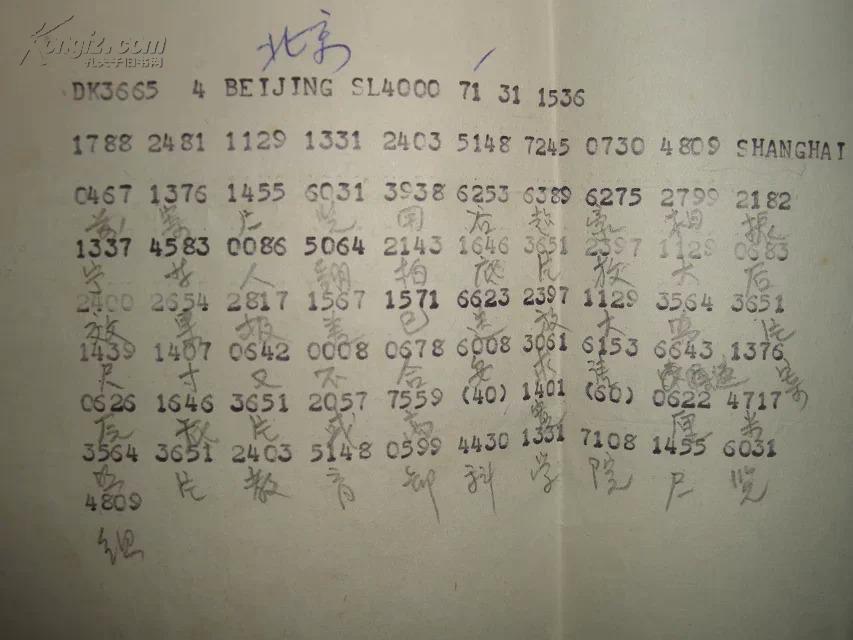 Kongfz.com
孔夫子旧书网
北京
DK3665 4 BEIJING SL4000 71 31 1536
1788 2481 1129 1331 2403 5148 7245 0730 4809 SHANGHAI
0467 1376 1455 6031 3938 6253 6389 6275 2799 2182
展览
1337 4583 0086 5064 2143 1646 3651 2397 1129 0683
人翻拍底片放大后
2400 2654 2817 1567 1571 6623 2397 1129 3564 3651
效果报差已送放大照片
1439 1407 0642 0008 0678 6008 3061 6153 6643 1376
尺寸又不合要求请
0626 1646 3651 2057 7559 (40) 1401 (60) 0622 4717
底片成高宽厘米
3564 3651 2403 5148 0599 4430 1331 7108 1455 6031
照片教育部科学院展览
4809
组